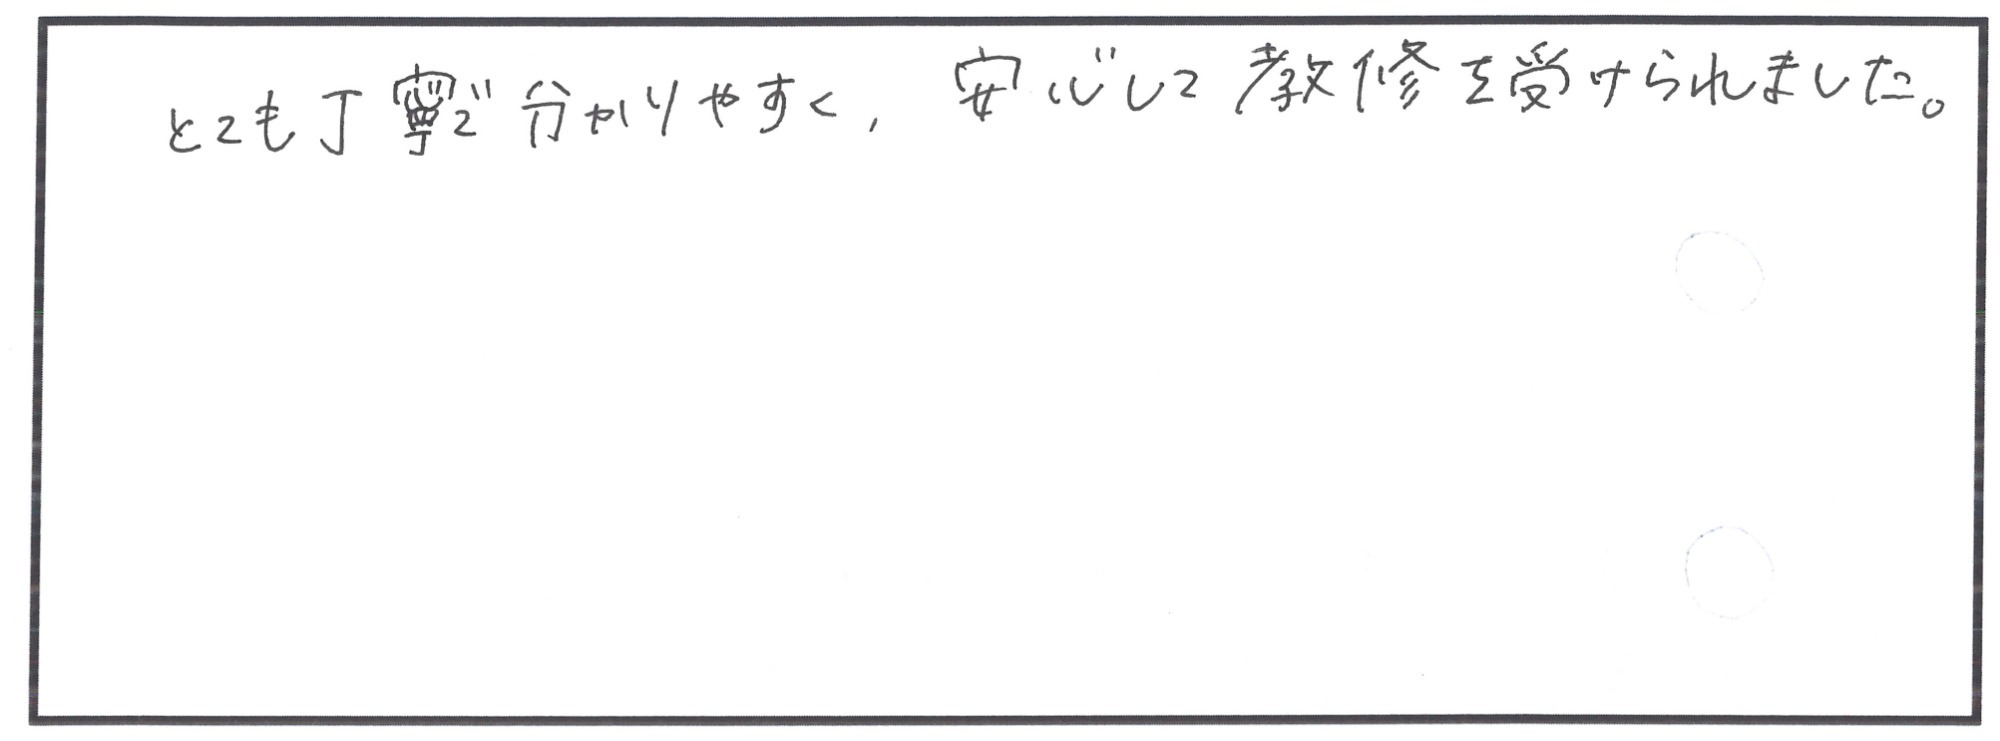 とても丁寧で分かりやすく、安心して教修を受けられました。